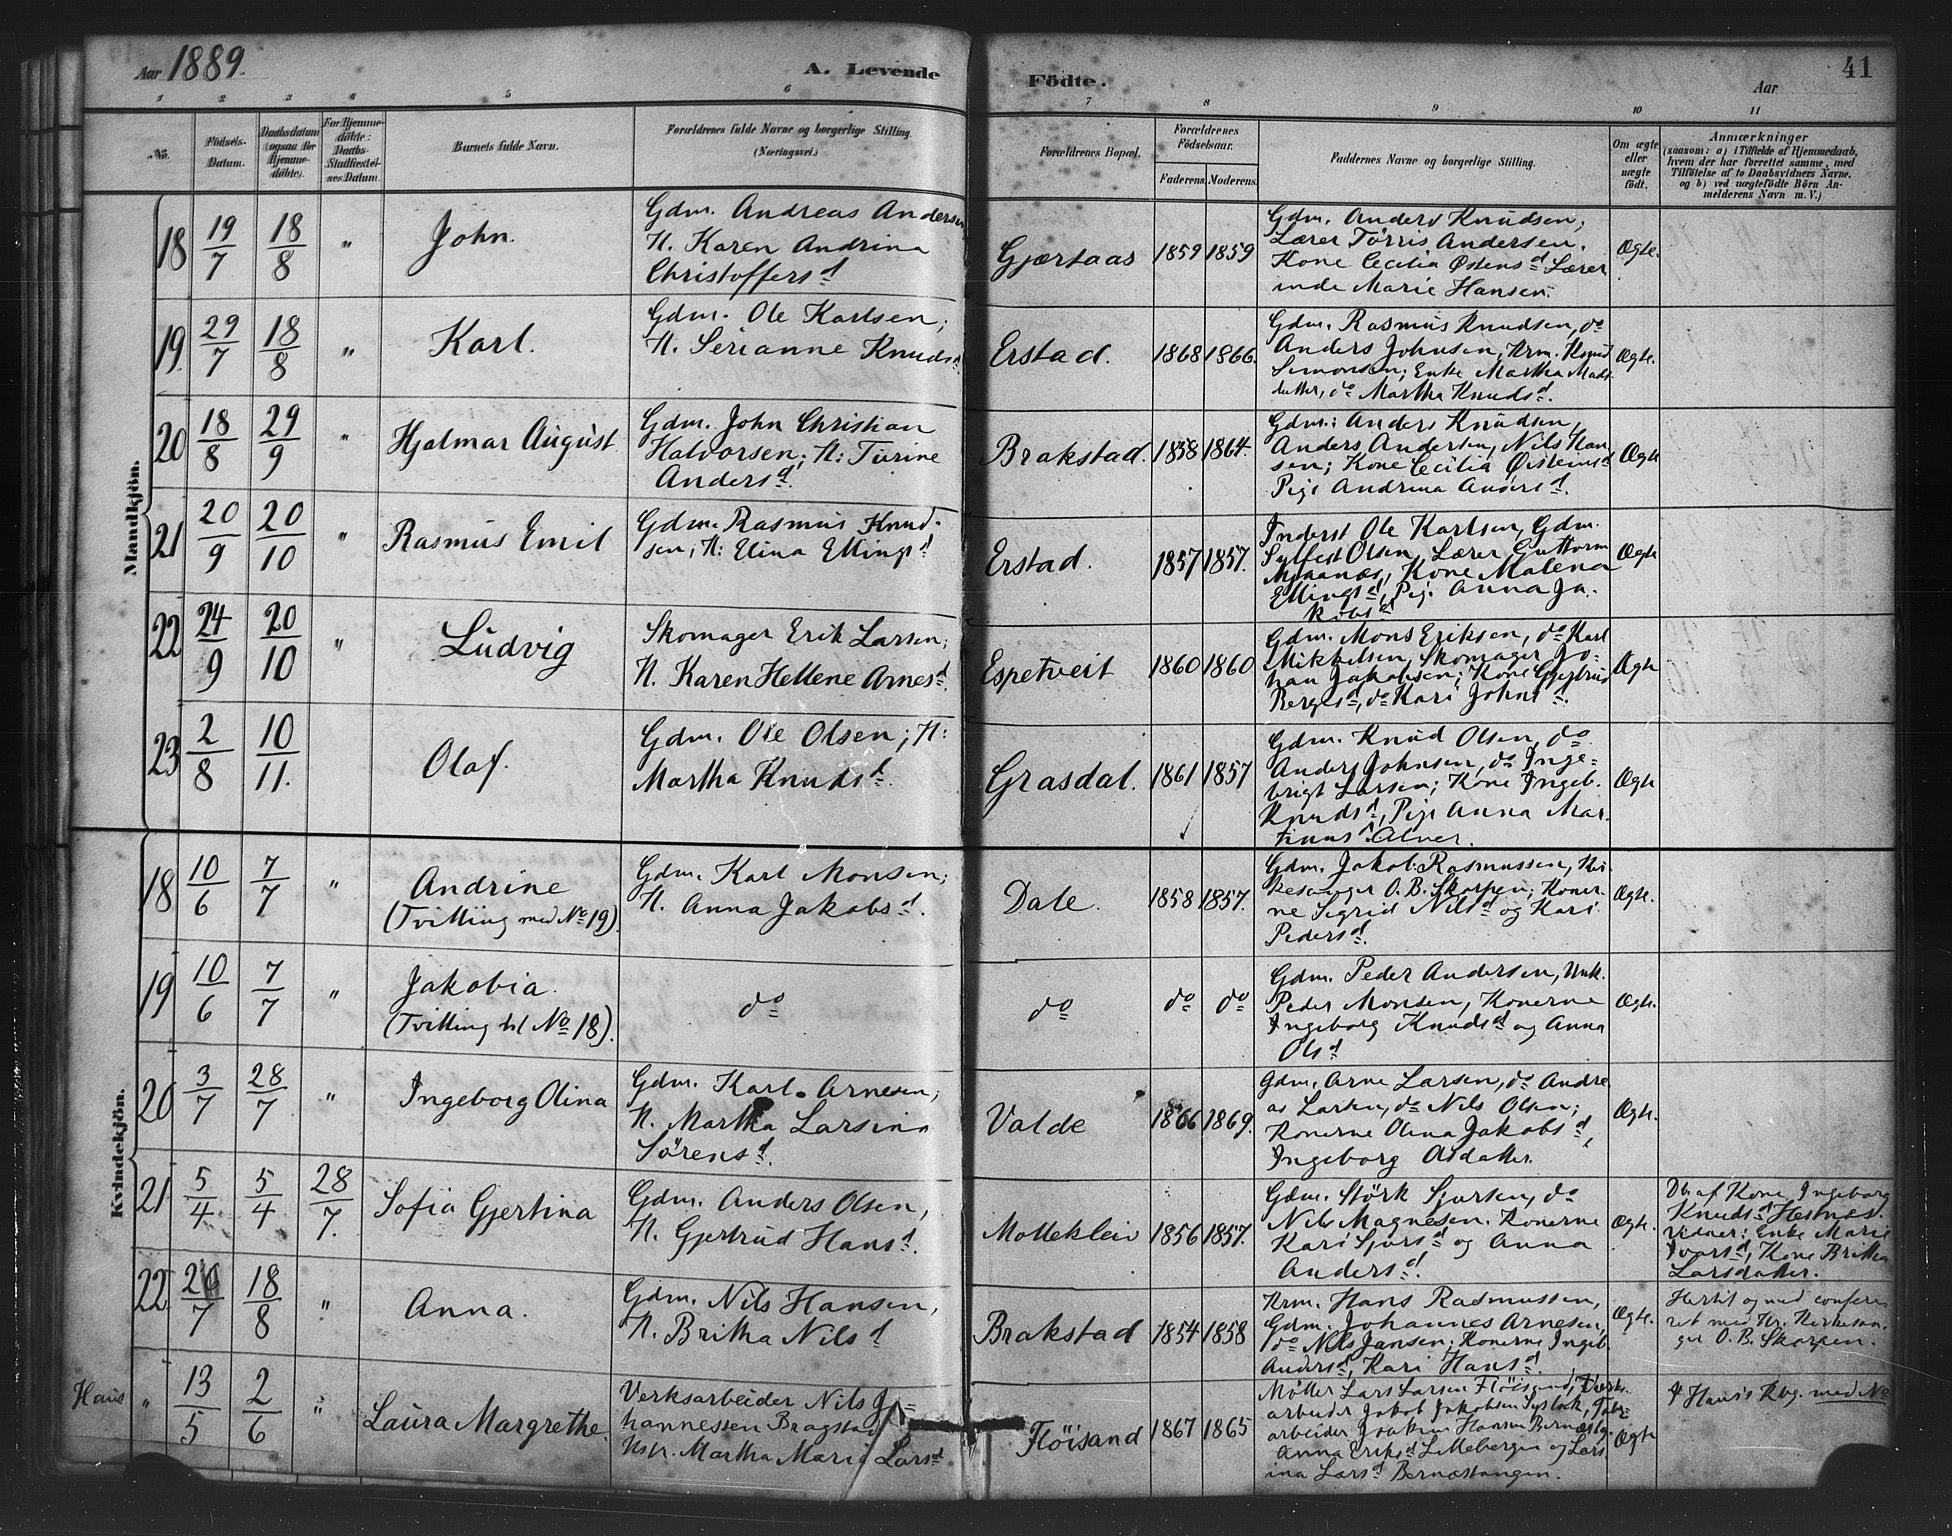 Aar 1889.
A. Levende
Födte.
Aar
41
1
2
3
4
5
6
7
8
9
10
11
No.
Födsels-
Datum.
Daabsdatum
(ogsaa for
Hjemme-
døbte).
For Hjemme-
döbte:
Daabs-
Stadfæstel-
ses Datum.
Barnets fulde Navn.
Forældrenes fulde Navne og borgerlige Stilling.
(Næringsvei.)
Forældrenes Bopæl.
Forældrenes
Födselsaar.
Faderens.
Moderens.
Faddernes Navne og borgerlige Stilling.
Om ægte
eller
uægte
födt.
Anmærkninger
(saasom: a) i Tilfælde af Hjemmedaab,
hvem der har forrettet samme, med
Tilföielse af to Daabsvidners Navne.
og b) ved uægtefödte Börn An-
melderens Navn m. V.)
Mandkjön.
18
19/7
18/8
"
John.
Gdm. Andreas Andersen
H. Karen Andrina
Christoffersd
Gjærtaas
1859
1859
Gdm. Anders Knudsen,
Lærer Törris Andersen.
Kone Cecilia Østensd Lærer
inde Marie Hansen.
Ægte.
19
29/7
18/8
"
Karl.
Gdm. Ole Karlsen;
H. Serianne Knudsd.
Erstad.
1868
1866.
Gdm. Rasmus Knudsen, do
Anders Johnsen, Krm. Knud
Simonsen; Enke Martha Mads
datter, do Martha Knudsd.
Ægte.
20
18/8
29/9
"
Hjalmar August
Gdm. John Christian
Halvorsen; H: Turine
Andersd.
Brakstad.
1858
1864.
Gdm: Anders Knudsen,
Anders Andersen, Nils Han
sen; Kone Cecilia Østensd
Pige Andrina Andersd.
Ægte
21
20/9
20/10
"
Rasmus Emil
Gdm. Rasmus Knud-
sen; H: Elina Ellingsd
Erstad.
1857
1857.
Inderst Ole Karlsen, Gdm.
Sylfest Olsen, Lærer Guttorm
Mjaanes, Kone Malena
Ellingsd, Pige Anna Ja-
kobsd
Ægte
22
24/9
20/10
"
Ludvig
Skomager Erik Larsen;
H. Karen Hellene Arnesd.
Espetveit
1860
1860
Gdm. Mons Eriksen, do Karl
Mikkelsen, Skomager Jo-
han Jakobsen; Kone Gjertrud
Bergesd, do Kari Johnsd.
Ægte
23
2/8
10/11.
Olaf.
Gdm. Ole Olsen; H:
Martha Knudsd.
Grasdal.
1861
1857
Gdm. Knud Olsen, do
Anders Johnsen, do Inge-
brigt Larsen; Kone Ingeb.
Knudsd, Pige Anna Mar-
tinusd Alver.
Ægte
Kvindekjön.
18
10/6
7/7
"
Andrine
(Tvilling med No 19).
Gdm. Karl Monsen;
H. Anna Jakobsd.
Dale.
1858
1857.
Gdm. Jakob Rasmussen, Kir
kesanger O. B. Skorpen; Koner
ne Sigrid Nilsd og Kari
Pedersd.
Ægte.
19
10/6
7/7
"
Jakobia.
(Tvilling til No 18).
do
do
do
do
Gdm. Peder Andersen, Unk.
Peder Monsen, Konerne
Ingeborg Knudsd og Anna
Olsd
Ægte.
20
3/7
28/7
"
Ingeborg Olina
Gdm. Karl Arnesen;
H. Martha Larsina
Sörensd.
Valde
1866
1869.
Gdm. Arne Larsen, do Andre
as Larsen, do Nils Olsen;
Konerne Olina Jakobsd,
Ingeborg Asdatter.
Ægte.
21
5/4
5/4
28/7.
Sofia Gjertina
Gdm. Anders Olsen,
H. Gjertrud Hansd.
Mottekleiv
1856
1857.
Gdm. Störk Sjursen, do
Nils Magnesen. Konerne
Kari Sjursd og Anna
Andersd.
Ægte.
Db. af Kone Ingeborg
Knudsd Hestnæs.
Vidner: Enke Marie
Ivarsd, Kone Britha
Larsdatter.
22
26/7
18/8
"
Anna.
Gdm. Nils Hansen,
H. Britha Nilsd
Brakstad
1854
1858
Krm. Hans Rasmussen,
Gdm. Johannes Arnesen,
do Nils Jansen; Konerne Ingeb.
Andersd, Kari Hansd.
Ægte.
Hertil og med confere
ret med Hr. Kirkesan-
ger O. B. Skorpen.
Haus
"
13/5
2/6
"
Laura Margrethe.
Verksarbeider Nils Jo-
hannessen Bragstad
Hstr. Martha Maria Larsd
Flöisand
1867
1865
Møller Lars Larsen Flöisand, Verks
arbeider Jakob Jakobsen
arbeider Joakim Hansen
Anna Eriksd Lillebergen og Lars
ina Larsd Bernæstangen.
Ægte
Haus's Kbg. med No